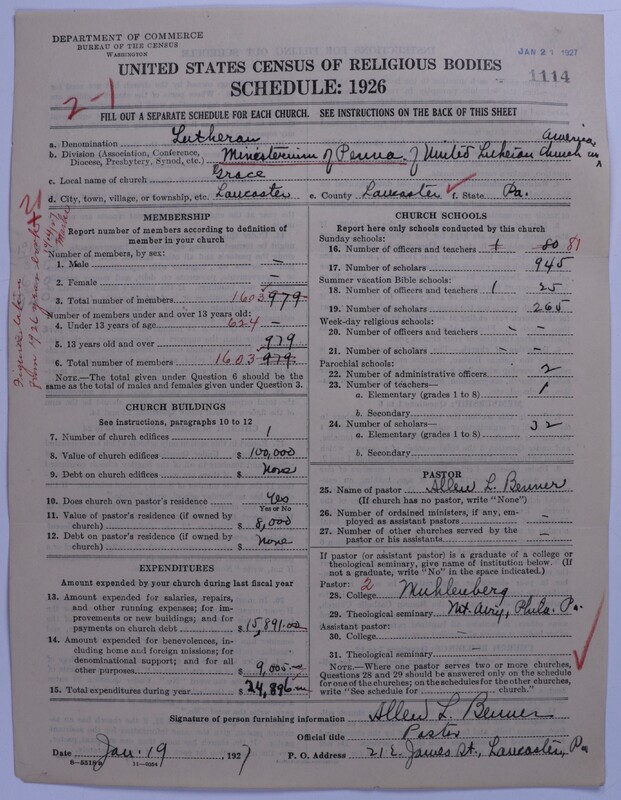 DEPARTMENT OF COMMERCE
BUREAU OF THE CENSUS
WASHINGTON
JAN 21 1927
1114
UNITED STATES CENSUS OF RELIGIOUS BODIES
SCHEDULE: 1926
2-1
FILL OUT A SEPARATE SCHEDULE FOR EACH CHURCH. SEE INSTRUCTIONS ON THE BACK OF THIS SHEET
a. Denomination Lutheran
b. Division (Association, Conference, Diocese, Presbytery, Synod, etc.) Ministerium of Penna. of United Lutheran Church in America
c. Local name of church Grace
d. City, town, village, or township, etc. Lancaster e. County Lancaster f. State Pa.
MEMBERSHIP
Report number of members according to definition of member in your church
Number of members, by sex:
1. Male —
2. Female —
3. Total number of members 1603 979
Number of members under and over 13 years old:
4. Under 13 years of age 624 —
5. 13 years old and over 979
6. Total number of members 1603 979
NOTE.—The total given under Question 6 should be the same as the total of males and females given under Question 3.
CHURCH BUILDINGS
See instructions, paragraphs 10 to 12
7. Number of church edifices 1
8. Value of church edifices $ 100,000
9. Debt on church edifices $ None
10. Does church own pastor's residence Yes
Yes or No
11. Value of pastor's residence (if owned by church) $ 8,000
12. Debt on pastor's residence (if owned by church) $ None
EXPENDITURES
Amount expended by your church during last fiscal year
13. Amount expended for salaries, repairs, and other running expenses; for improvements or new buildings; and for payments on church debt $ 15,891.00
14. Amount expended for benevolences, including home and foreign missions; for denominational support; and for all other purposes $ 9,005.00
15. Total expenditures during year $ 24,896.00
CHURCH SCHOOLS
Report here only schools conducted by this church
Sunday schools:
16. Number of officers and teachers 1 80 81
17. Number of scholars 945
Summer vacation Bible schools:
18. Number of officers and teachers 1 25
19. Number of scholars 265
Week-day religious schools:
20. Number of officers and teachers - -
21. Number of scholars - -
Parochial schools:
22. Number of administrative officers 2
23. Number of teachers—
a. Elementary (grades 1 to 8) 1
b. Secondary
24. Number of scholars—
a. Elementary (grades 1 to 8) 32
b. Secondary
PASTOR
25. Name of pastor Allen L. Benner
(If church has no pastor, write "None")
26. Number of ordained ministers, if any, employed as assistant pastors -
27. Number of other churches served by the pastor or his assistants -
If pastor (or assistant pastor) is a graduate of a college or theological seminary, give name of institution below. (If not a graduate, write "No" in the space indicated.)
Pastor: 2
28. College Muhlenberg
29. Theological seminary Mt. Airy, Phila. Pa.
Assistant pastor:
30. College —
31. Theological seminary —
NOTE.—Where one pastor serves two or more churches, Questions 28 and 29 should be answered only on the schedule for one of the churches; on the schedules for the other churches, write "See schedule for church."
Signature of person furnishing information Allen L. Benner
Official title Pastor
Date Jan. 19 1927 P. O. Address 21 E. James St., Lancaster, Pa
8—5519a 11—9084